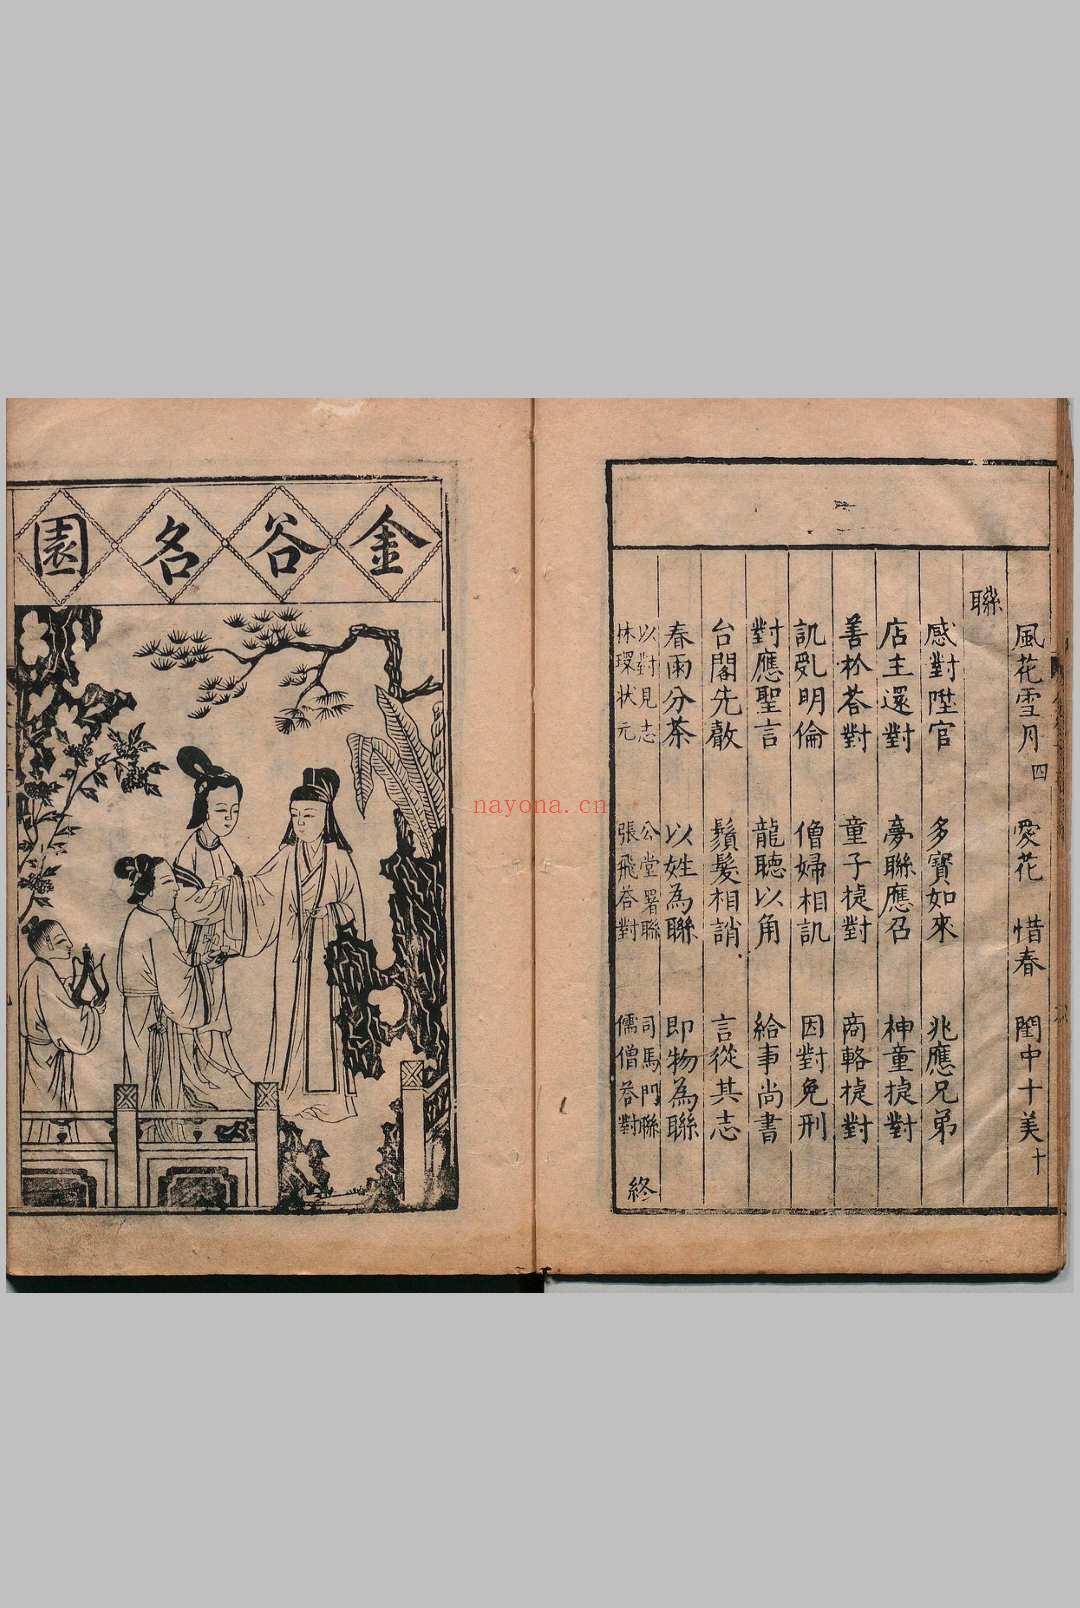 風花雪月四 愛花 惜春 閨中十美十
聯
感對陞官 多寶如來 兆應兄弟
店主還對 夢聯應召 神童捷對
善於荅對 童子捷對 商輅捷對
訊亂明倫 僧婦相訊 因對免刑
對應聖言 龍聽以角 給事尚書
台閣先聲 鬚髮相誚 言從其志
春雨分茶 以姓為聯 即物為聯
以對見志 公堂署聯 司馬門聯
林環狀元 張飛荅對 儒僧荅對
終
金谷名園
nayona.cn